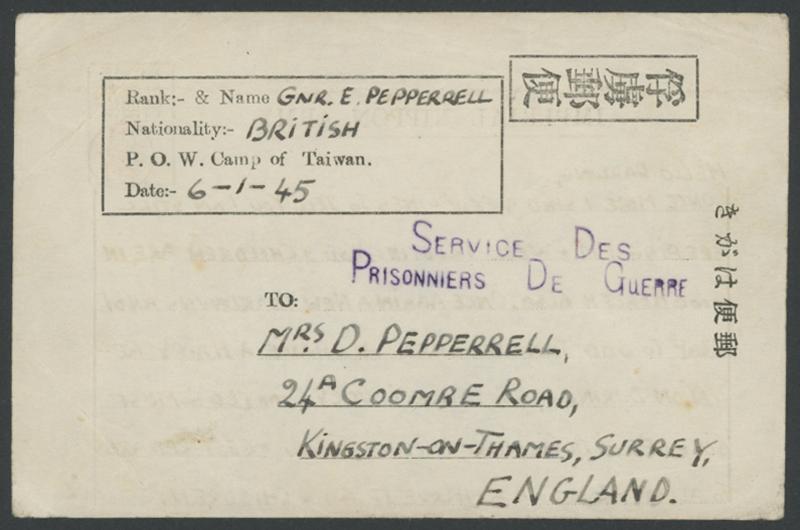 Rank:- & Name GNR. E. PEPPERRELL
Nationality:- BRITISH
P. O. W. Camp of Taiwan.
Date:- 6-1-45
俘虜郵便
郵便はがき
SERVICE DES
PRISONNIERS DE GUERRE
TO:
MRS D. PEPPERRELL,
24A COOMBE ROAD,
KINGSTON-ON-THAMES, SURREY,
ENGLAND.